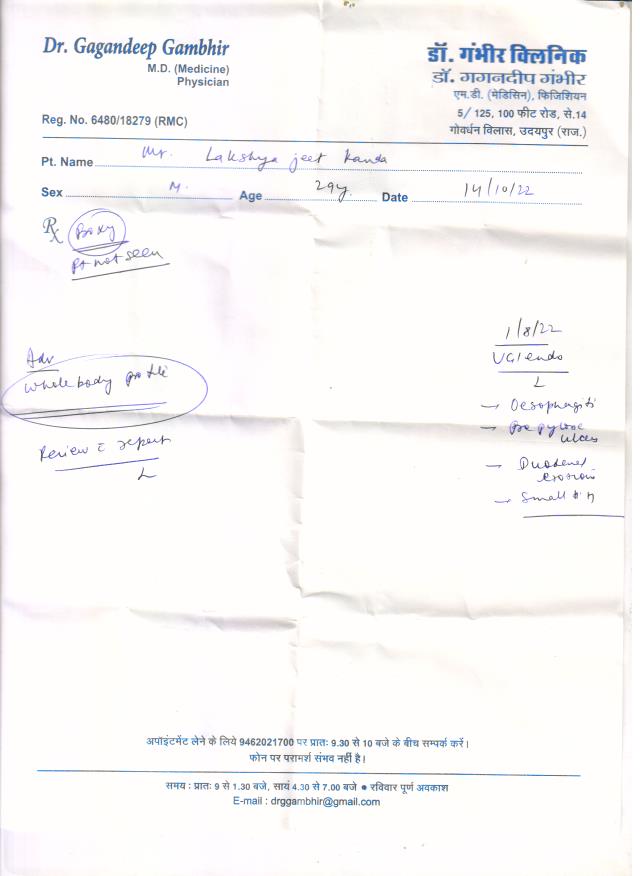 Dr. Gagandeep Gambhir
M.D. (Medicine)
Physician
Reg. No. 6480/18279 (RMC)
डॉ. गंभीर क्लिनिक
डॉ. गगनदीप गंभीर
एम.डी. (मेडिसिन), फिजिशियन
5/ 125, 100 फीट रोड, से.14
गोवर्धन विलास, उदयपुर (राज.)
Pt. Name Mr. Lakshya jeet
Sex M. Age 29y. Date 14/10/22
Rx Proxy
Pt not seen
Adv
Whole body profile
Review c report
1/8/22
UGI endo
Oesophagiti
Pre pyloric
ulcer
Duodenal
erosion
Small
अपॉइंटमेंट लेने के लिये 9462021700 पर प्रातः 9.30 से 10 बजे के बीच सम्पर्क करें।
फोन पर परामर्श संभव नहीं है।
समय : प्रातः 9 से 1.30 बजे, सायं 4.30 से 7.00 बजे ● रविवार पूर्ण अवकाश
E-mail : drggambhir@gmail.com